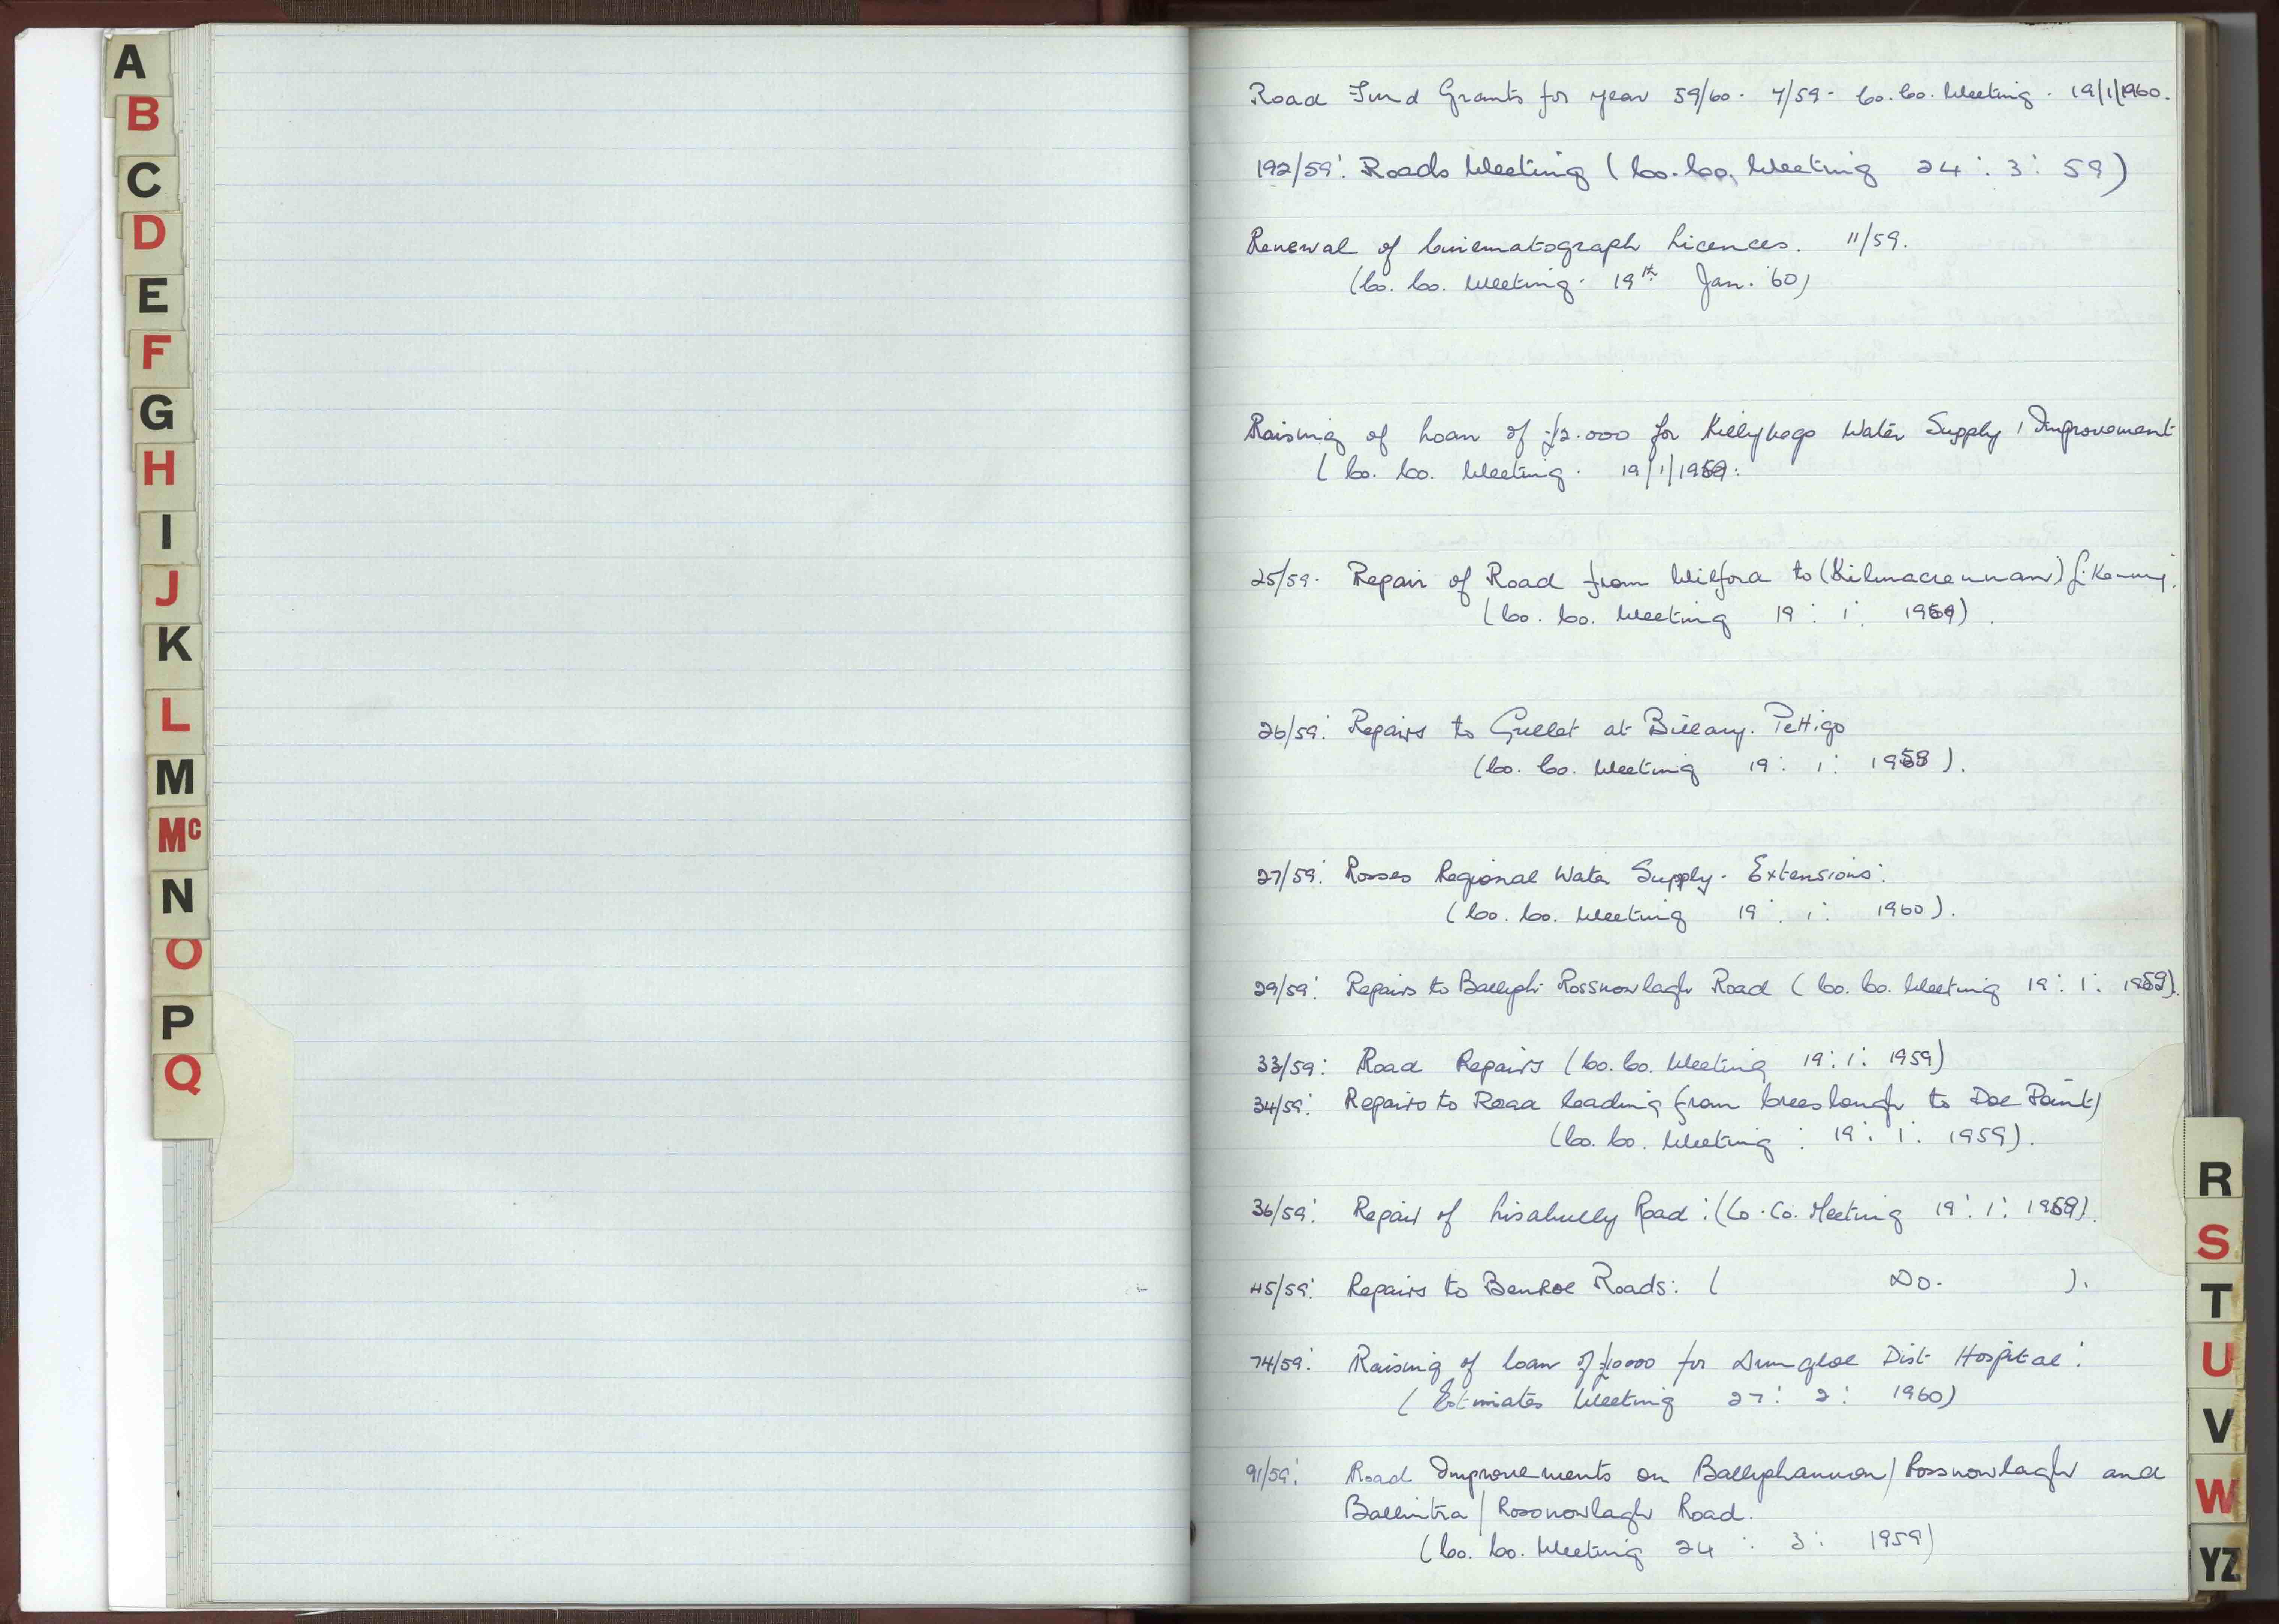 A
B
C
D
E
F
G
H
I
J
K
L
M
Mc
N
O
P
Q
Road Fund Grants for year 59/60. 7/59. Co. Co. Meeting. 19/1/1960.
192/59: Roads Meeting (Co. Co. Meeting 24: 3: 59)
Renewal of Cinematograph Licences. 11/59.
(Co. Co. Meeting. 19th Jan. '60)
Raising of Loan of £2.000 for Killybegs Water Supply Improvement
(Co. Co. Meeting. 19/1/1959.
25/59. Repair of Road from Milford to (Kilmacrennan)
(Co. Co. Meeting 19: 1: 1959).
26/59: Repairs to Gullet at Billary. Pettigo
(Co. Co. Meeting 19: 1: 1959).
27/59: Rosses Regional Water Supply. Extensions:
(Co. Co. Meeting 19: 1: 1960).
29/59: Repairs to Ballyph. Rossnowlagh Road (Co. Co. Meeting 19: 1: 1959).
33/59: Road Repairs (Co. Co. Meeting 19: 1: 1959)
34/59: Repairs to Road leading from Creeslough to Doe Point)
(Co. Co. Meeting: 19: 1: 1959).
36/59: Repair of Lisahully Road: (Co. Co. Meeting 19: 1: 1959).
45/59: Repairs to Benroe Roads: ( Do. ).
74/59: Raising of loan of £10000 for Dungloe Dist Hospital:
(Estimates Meeting 27: 2: 1960)
91/59: Road Improvements on Ballyshannon/Rossnowlagh and
Ballintra/Rossnowlagh Road.
(Co. Co. Meeting 24: 3: 1959)
R
S
T
U
V
W
YZ